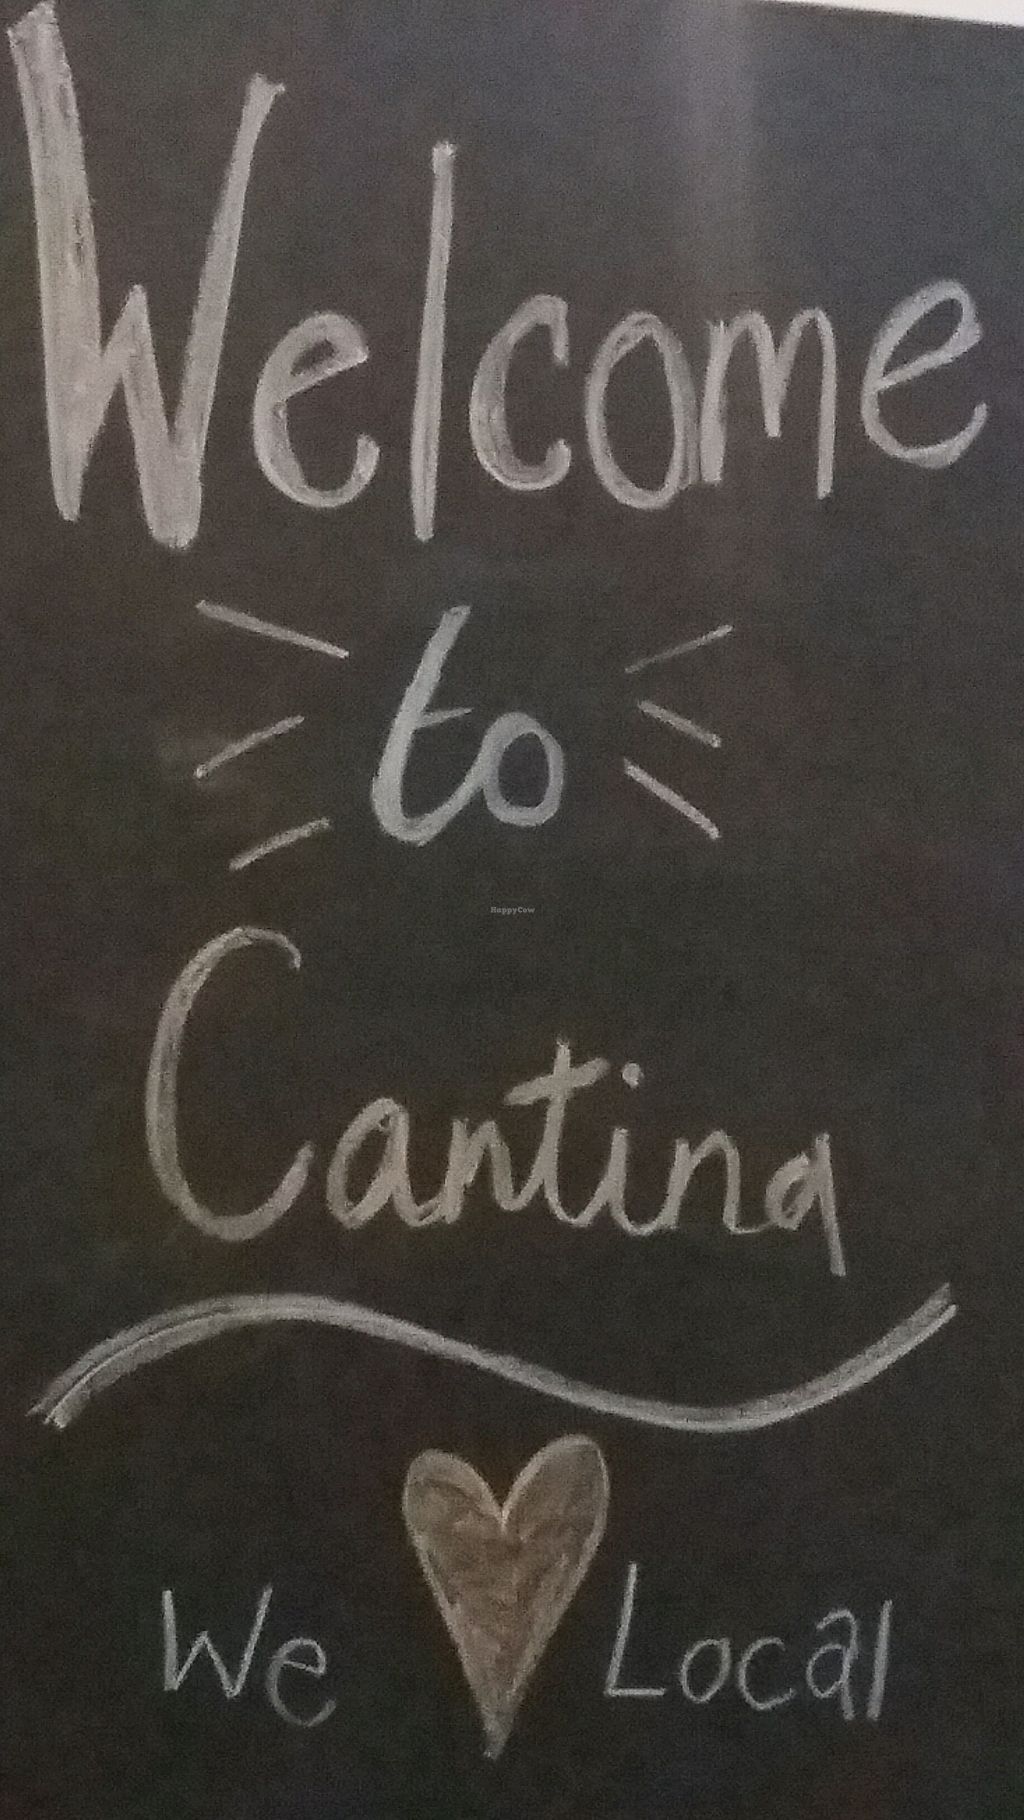 Welcome
to
HappyCow
Cantina
We ♥ Local